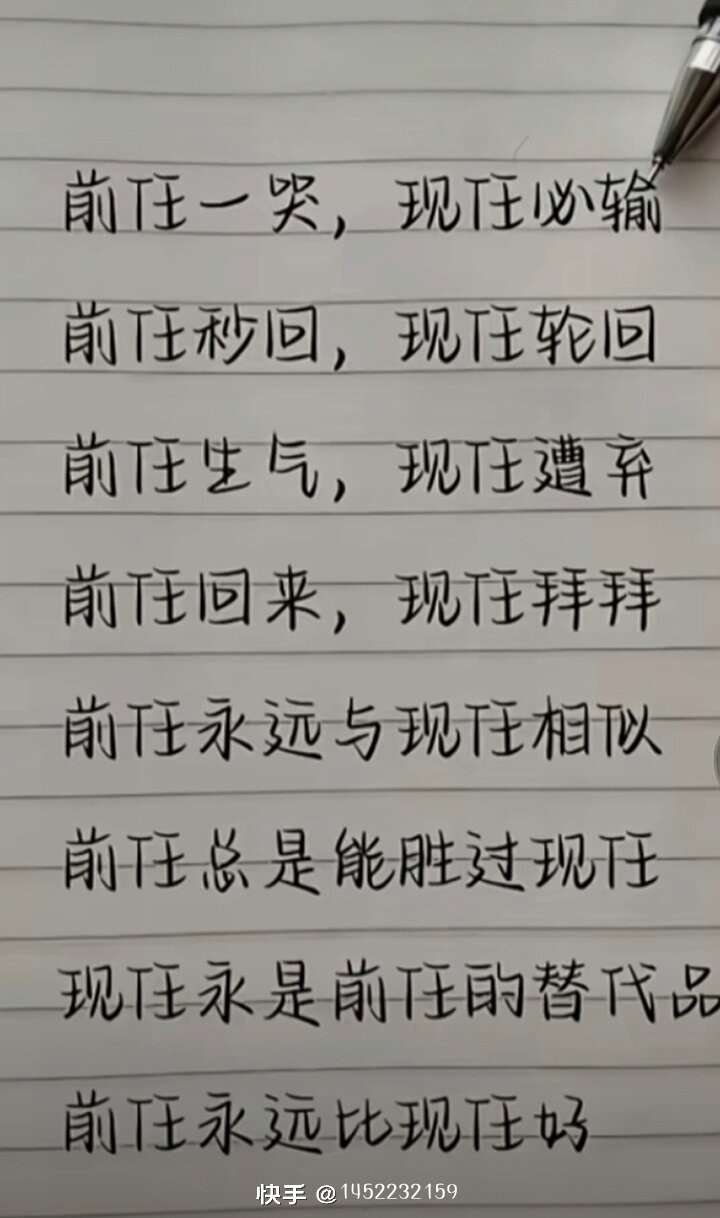 前任一哭，现任必输
前任秒回，现任轮回
前任生气，现任遭弃
前任回来，现任拜拜
前任永远与现任相似
前任总是能胜过现任
现任永是前任的替代品
前任永远比现任好
快手 @1452232159